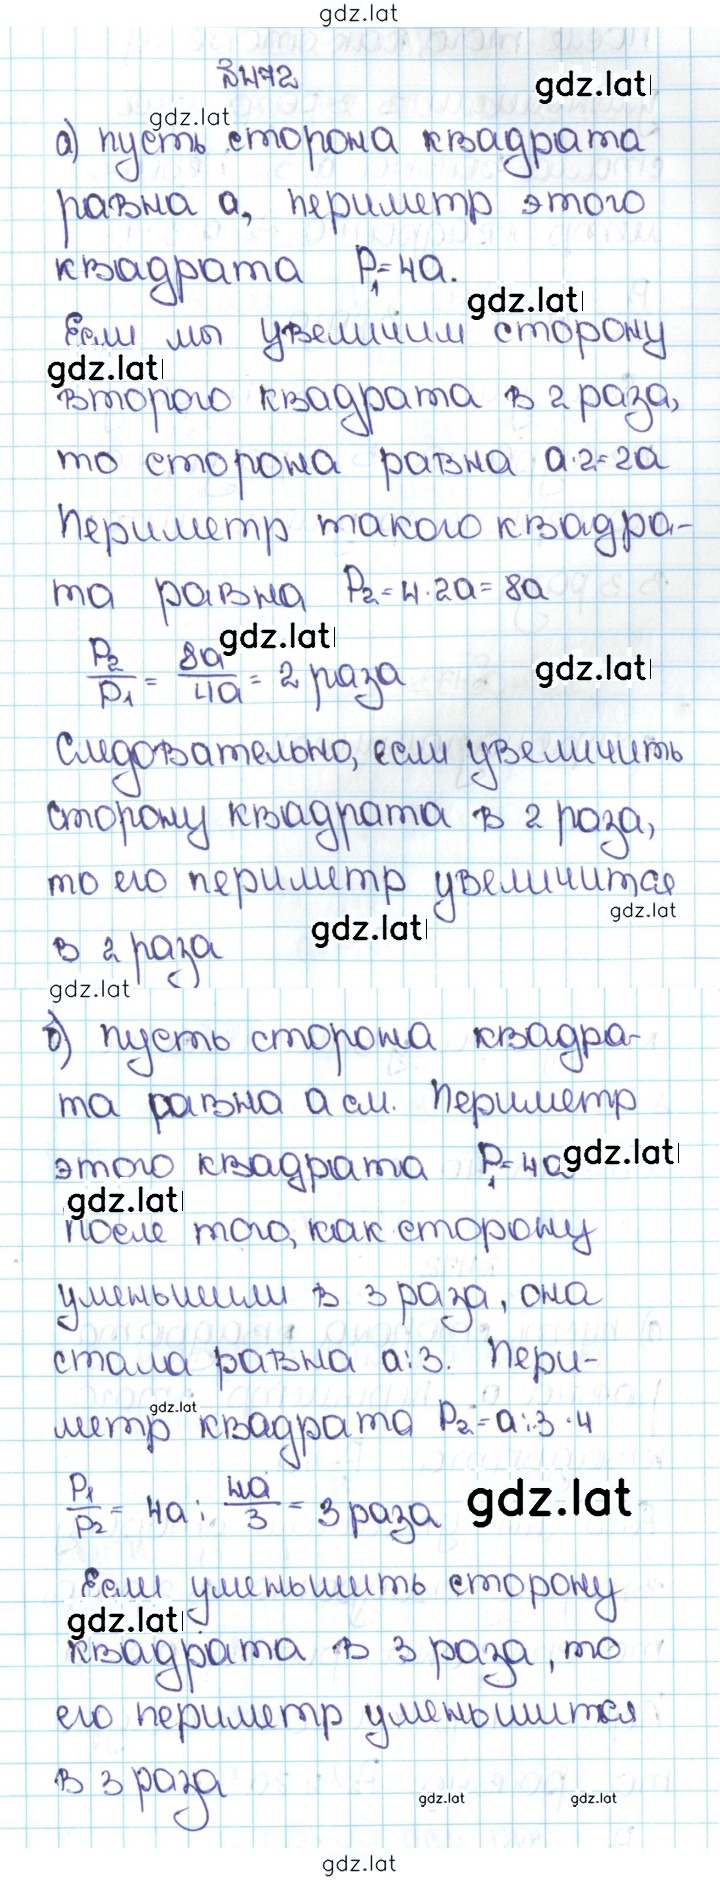 gdz.lat
№472
gdz.lat
gdz.lat
а) пусть сторона квадрата
равна а, периметр этого
квадрата P₁=4a.
gdz.lat
Если мы увеличим сторону
gdz.lat
второго квадрата в 2 раза,
то сторона равна a·2=2a
Периметр такого квадра-
та равна P₂=4·2a=8a
gdz.lat
P₂/P₁ = 8a/4a = 2 раза
gdz.lat
Следовательно, если увеличить
сторону квадрата в 2 раза,
то его периметр увеличится
gdz.lat
gdz.lat
в 2 раза
gdz.lat
б) пусть сторона квадра-
та равна а см. Периметр
этого квадрата P₁=4a
gdz.lat
gdz.lat
После того, как сторону
уменьшили в 3 раза, она
стала равна а:3. Пери-
gdz.lat
метр квадрата P₂=a:3·4
P₁/P₂ = 4a : 4a/3 = 3 раза
gdz.lat
Если уменьшить сторону
gdz.lat
квадрата в 3 раза, то
его периметр уменьшится
в 3 раза
gdz.lat gdz.lat
gdz.lat